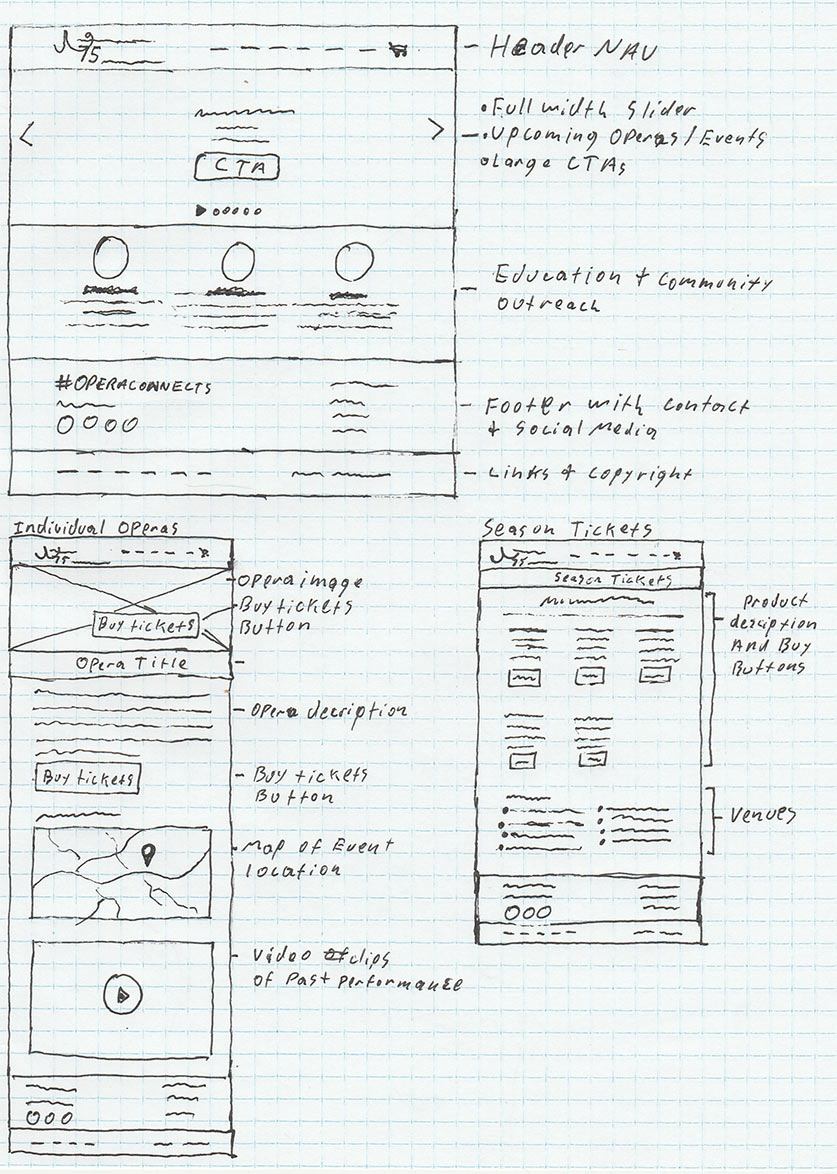 Header NAV
• Full width Slider
• Upcoming Operas/Events
• Large CTAs
<
>
CTA
Education + Community
Outreach
#OPERACONNECTS
Footer with contact
+ Social Media
Links + Copyright
Individual Operas
Opera image
Buy tickets
Button
Buy tickets
Opera Title
Opera decription
Buy tickets
Buy tickets
Button
Map of Event
location
Video clips
of Past performance
Season Tickets
Season Tickets
Product
decription
And Buy
Buttons
Venues